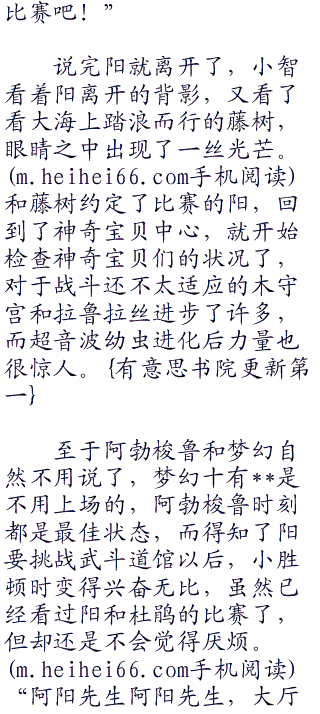 比赛吧！”
说完阳就离开了，小智
看着阳离开的背影，又看了
看大海上踏浪而行的藤树，
眼睛之中出现了一丝光芒。
(m.heihei66.com手机阅读)
和藤树约定了比赛的阳，回
到了神奇宝贝中心，就开始
检查神奇宝贝们的状况了，
对于战斗还不太适应的木守
宫和拉鲁拉丝进步了许多，
而超音波幼虫进化后力量也
很惊人。{有意思书院更新第
一}
至于阿勃梭鲁和梦幻自
然不用说了，梦幻十有**是
不用上场的，阿勃梭鲁时刻
都是最佳状态，而得知了阳
要挑战武斗道馆以后，小胜
顿时变得兴奋无比，虽然已
经看过阳和杜鹃的比赛了，
但却还是不会觉得厌烦。
(m.heihei66.com手机阅读)
“阿阳先生阿阳先生，大厅